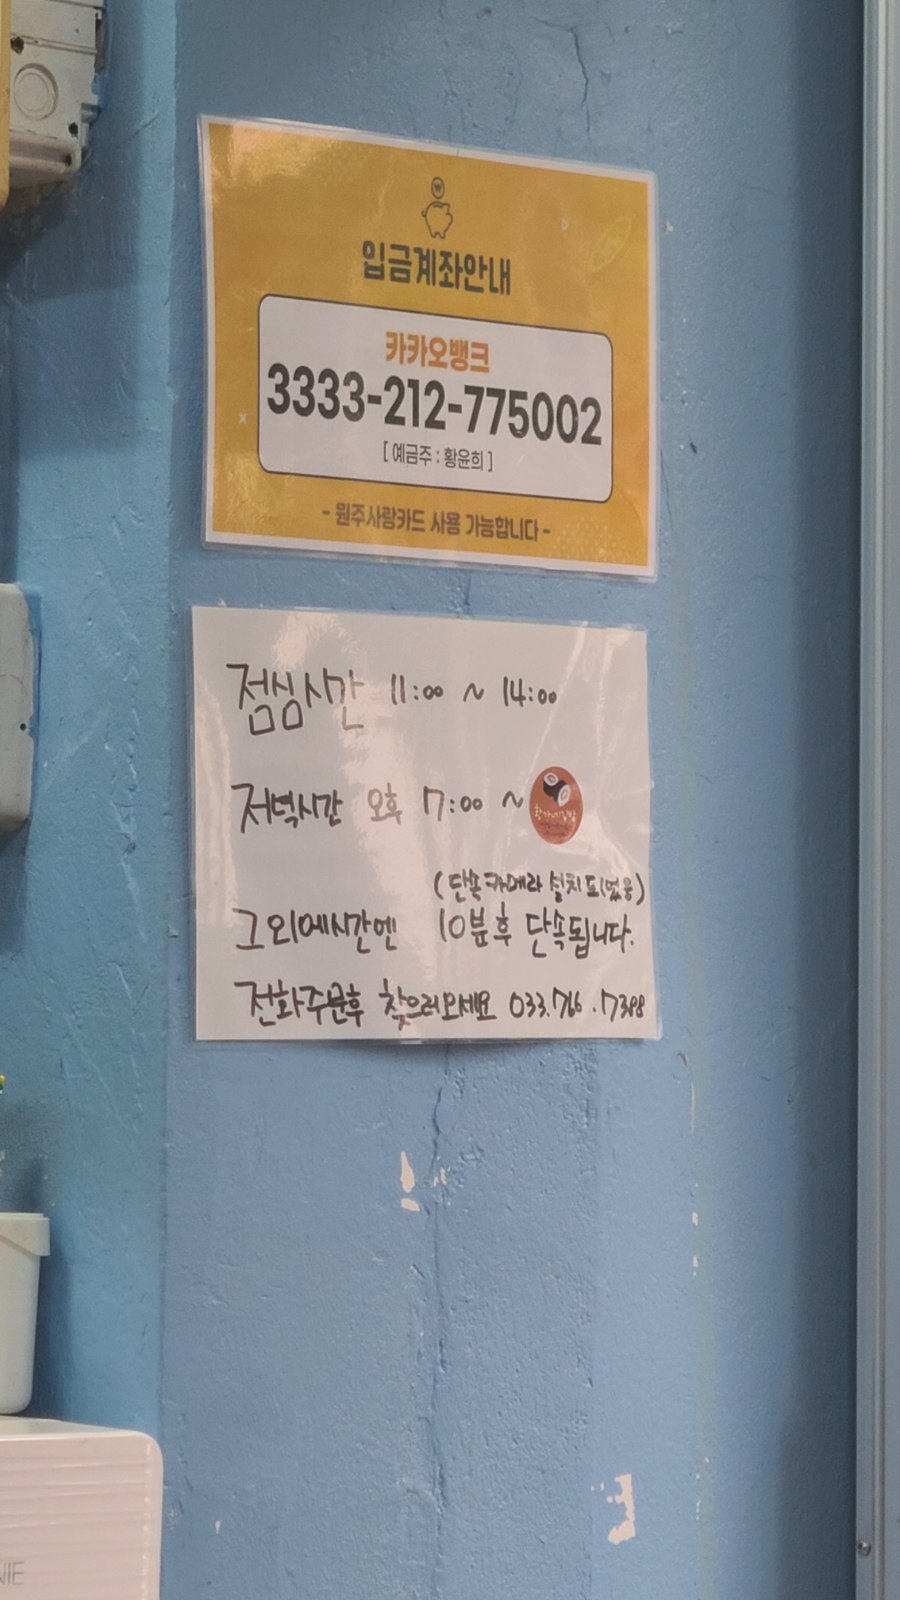 ₩
입금계좌안내
카카오뱅크
3333-212-775002
[ 예금주 : 황윤희 ]
- 원주사랑카드 사용 가능합니다 -
점심시간 11:00 ~ 14:00
저녁시간 오후 7:00 ~
(단속카메라 설치되었음)
그외에시간엔 10분후 단속됩니다.
전화주문후 찾으러오세요 033.766.7388
NIE